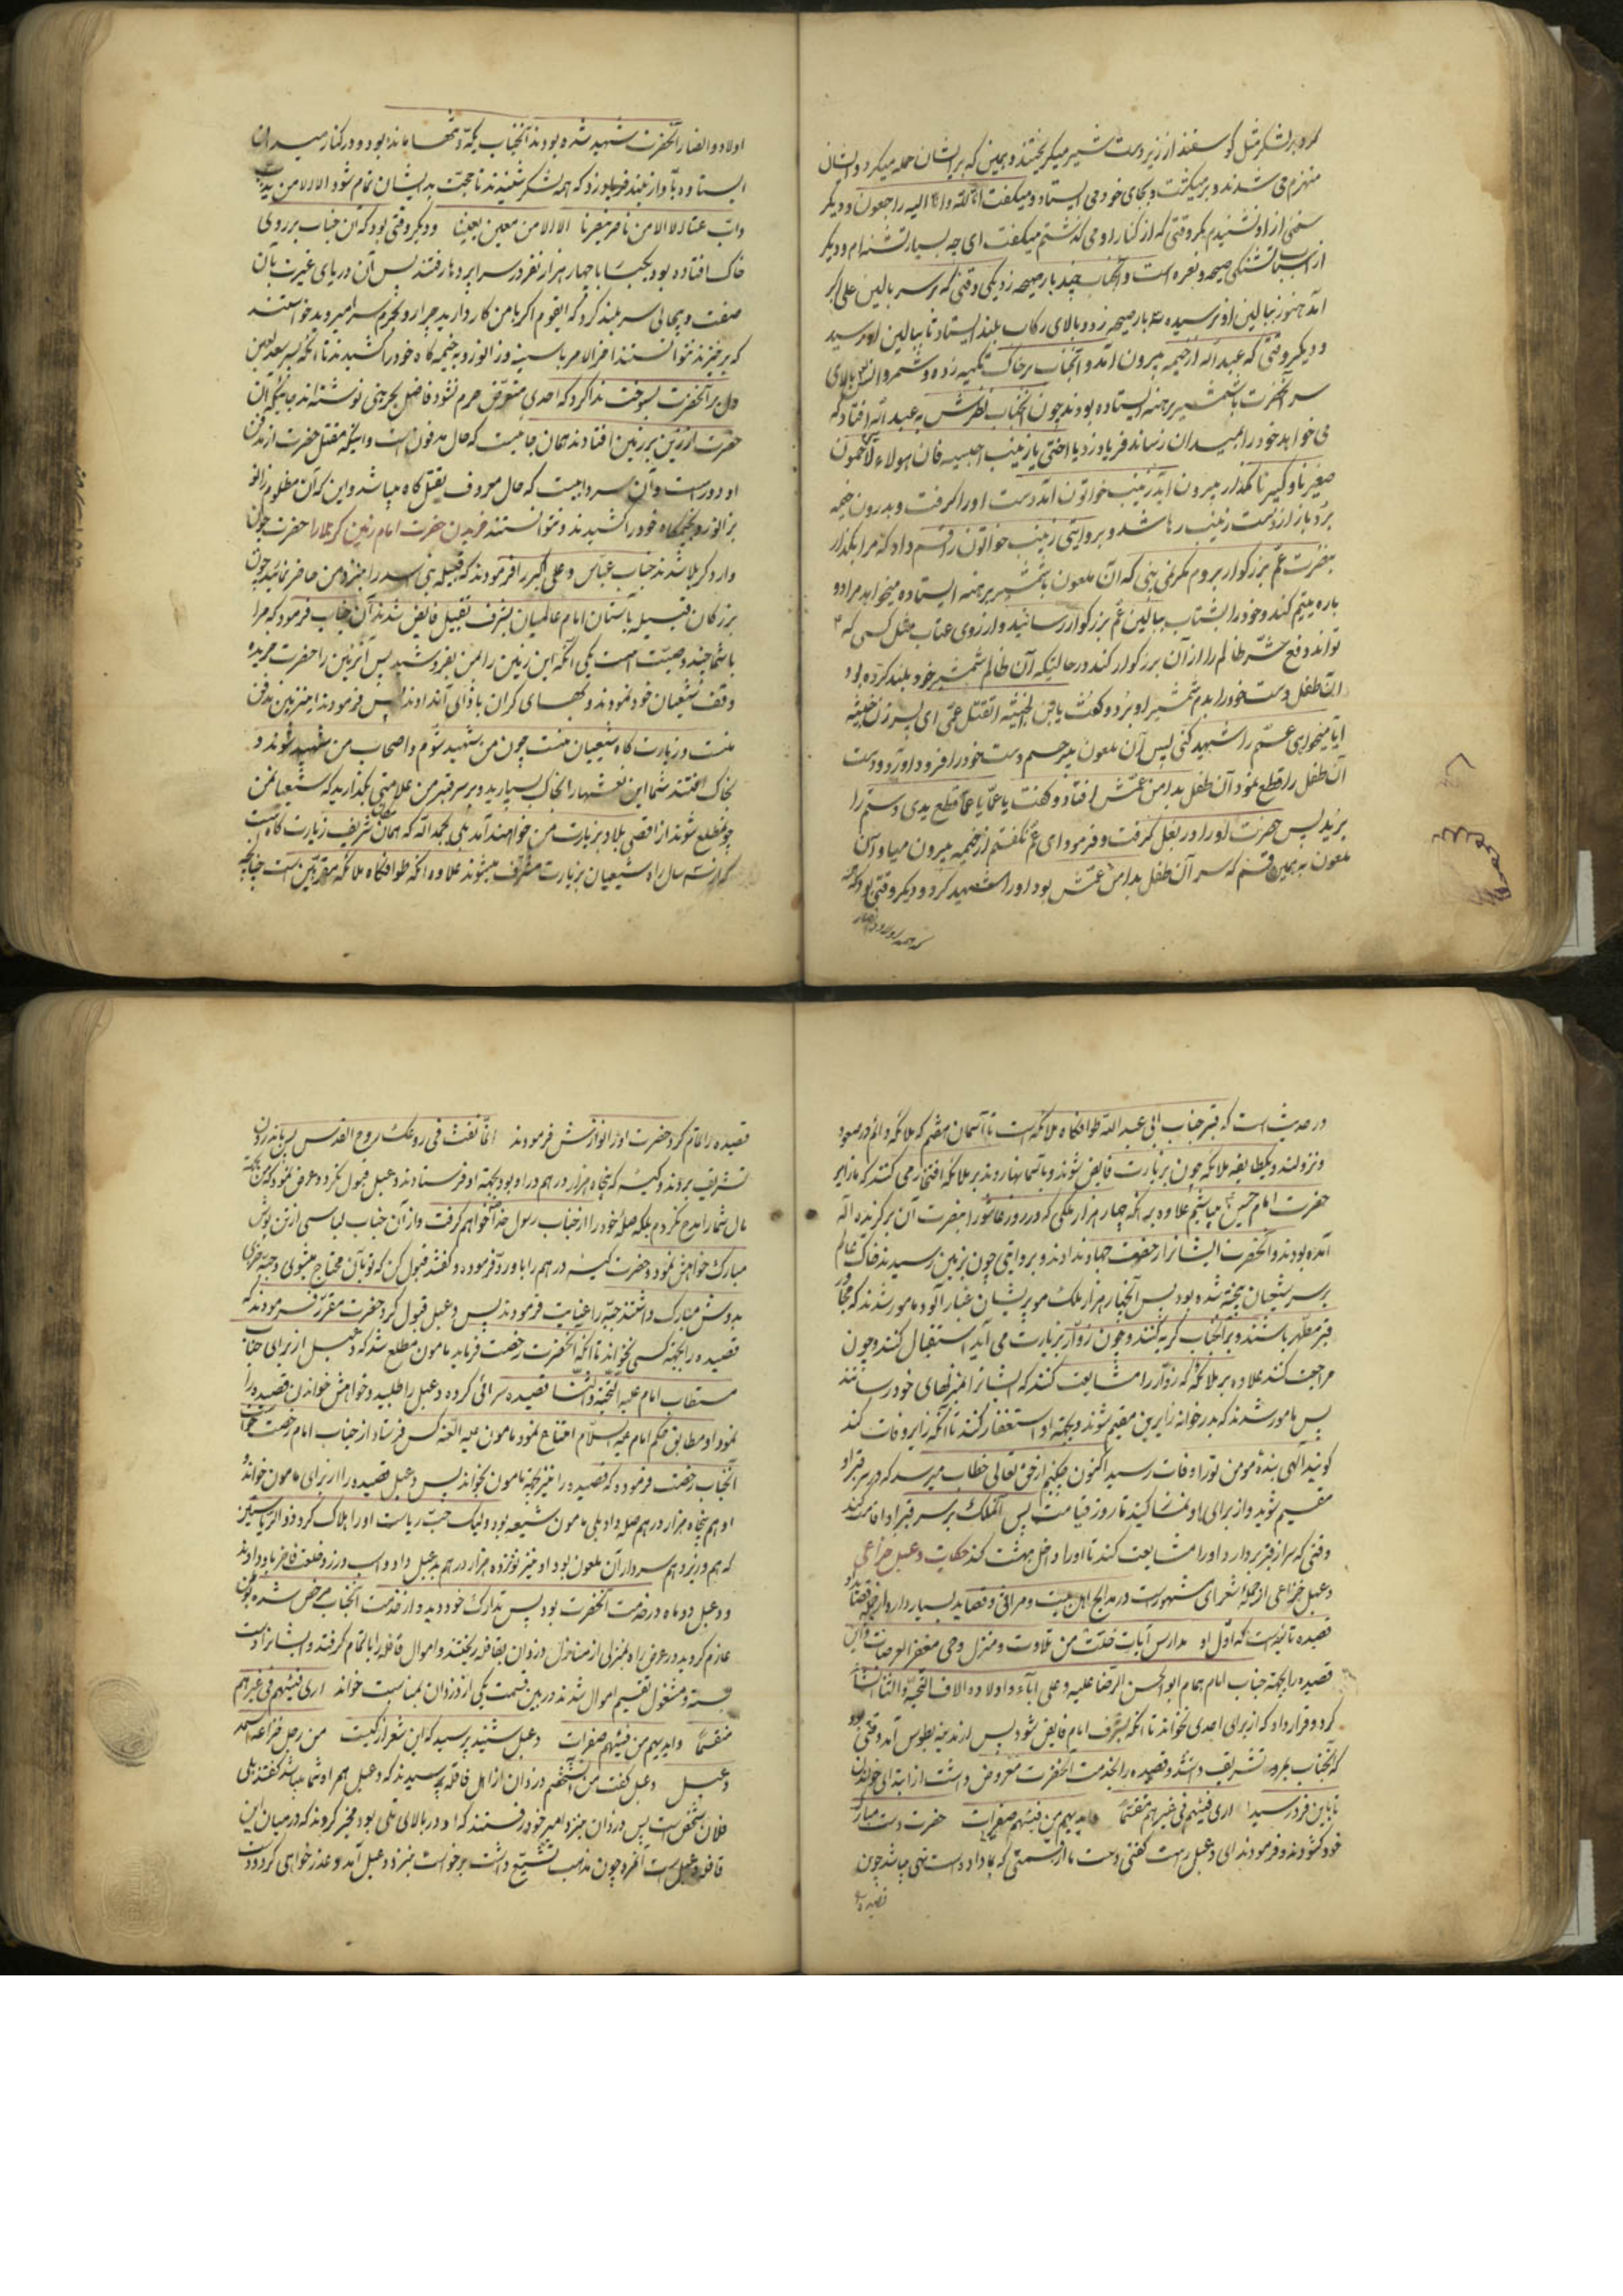 کرد بر لشکر مثل گوسفند از زیر دست شیر میگریختند و همین که بر ایشان حمله میکرد و ایشان
منهزم می شدند و بر میگشت و بجای خود می ایستاد و میگفت انا لله و انا الیه راجعون و دیگر
سخنی از او نشنیدم مگر وقتی که از کنار او می گذشتم میگفت ای چه بسیار تشنه ام و دیگر
از اسباب تشنگی صیحه و نعره است و آنجناب چند بار صیحه زد یکی وقتی که بر سر بالین علی اکبر
آمد هنوز ببالین او نرسیده بار صیحه زد و بالای رکاب بلند ایستاد تا ببالین او رسید
و دیگر وقتی که عبد الله از خیمه بیرون آمد و آنجناب بر خاک تکیه زده و شمر و بالای
سر آنحضرت با شمشیر برهنه ایستاده بودند چون آنجناب نظرش به عبد الله افتاد که
می خواهد خود را بمیدان رساند فریاد زد یا اختی یا زینب احبسیه فان هولاء لا یرحمون
صغیرنا و کبیرنا مگذار بیرون آید زینب خواتون آمد دست او را گرفت و بدرون خیمه
برد باز از دست زینب رها شد و بروایتی زینب خواتون را قسم داد که مرا بگذار
بنصرت عم بزرگوار بروم مگر نمی بینی که آن ملعون با شمشیر برهنه ایستاده میخواهد مرا دو
باره یتیم کند و خود را بشتاب ببالین عم بزرگوار رسانید و از روی عتاب مثل کسی که
تواند دفع شر ظالم را از آن بزرگوار کند در حالتیکه آن ظالم شمشیر خود بلند کرده بود
آن طفل دست خود را بدم شمشیر او برد و گفت یابن الخبیثه اتقتل عمی ای پسر زن خبیثه
آیا میخواهی عمم را شهید کنی پس آن ملعون بیرحم دست خود را فرود آورد و دست
آن طفل را قطع نمود آن طفل بدامن عمش افتاد و گفت یا عماه یا عماه قطع یدی دستم را
بریدند پس حضرت او را در بغل گرفت و فرمود ای عم نگفتم از خیمه بیرون میا و آن
ملعون به همین قسم که سر آن طفل بدامن عمش بود او را شهید کرد و دیگر وقتی بود که
که همه اولاد و انصار
اولاد و انصار آنحضرت شهید شده بودند آنجناب یکه و تنها مانده بود و در کنار میدان
ایستاده بآواز بلند فریاد زد که همه لشکر شنیدند تا حجت بر ایشان تمام شود الا من
ذاب عنا الا الا من ناصر ینصرنا الا الا من معین یعیننا و دیگر وقتی بود که آن جناب بر روی
خاک افتاده بود یکمرتبه با چهار هزار نفر در سراپرده ها رفتند پس آن دریای غیرت بآن
ضعف و بیحالی سر بلند کرد که ایقوم اگر با من کار دارید چرا رو بحرم سرا میروید خواستند
که برخیزند نتوانستند اخر الامر با سینه و زانو رو به خیمه گاه خود را کشیدند تا آنکه پسر سعد لعین
دل بر آنحضرت بسوخت ندا کرد که احدی متعرض حرم نشود فاضل بحرینی نوشته اند جائیکه آن
حضرت از زین بر زمین افتادند همان جاهست که حال مدفونست و اینکه مقتل حضرت از مدفن
او دور است و آن سردابیست که حال معروف بقتل گاه میباشد و این که آن مظلوم زانو
بزانو رو بخیمگاه خود را کشیدند و نتوانستند خریدن حضرت امام زمین کربلا را حضرت چون
وارد کربلا شدند جناب عباس و علی اکبر را فرمودند که قبیله بنی اسد را بنزد من حاضر نمائید چون
بزرگان قبیله بآستان امام عالمیان بشرف تقبیل فایض شدند آن جناب فرمود که مرا
با شما چند وصیت است یکی آنکه این زمین را بمن بفروشید پس آن زمین را حضرت خریده
وقف شیعیان خود نمودند و بهای گران باذای آنها دادند پس فرمودند این زمین مدفن
منست و زیارت گاه شیعیان منست چون من شهید شوم و اصحاب من شهید شوند و
بخاک افتند شما این نعشها را بخاک بسپارید و بر سر قبر من علامتی بگذارید که شیعیان من
چو مطلع شوند از اقصی بلاد بزیارت من خواهند آمد بلی بحمد الله که همان مکان شریف زیارت گاهست
که از سه سال راه شیعیان بزیارت مشرف میشوند علاوه آنکه طوافگاه ملائکه مقربین است چنانچه
در حدیث است که قبر جناب ابی عبد الله طوافگاه ملائکه است تا آسمان هفتم که ملائکه دائم در صعود
و نزولند و یکطایفه ملائکه چون بزیارت فایض شوند و بآسمانها روند بر ملائکه افتخار می کنند که ما زایر
حضرت امام حسین میباشیم علاوه بر آنکه چهار هزار ملکی که در روز عاشورا بنصرت آن برگزیده اله
آمده بودند و آنحضرت ایشانرا رخصت جهاد ندادند و بروایتی چون بزمین رسیدند خاک عالم
بر سر شیعیان بیخته شده بود پس آنچهار هزار ملک مو پریشان غبار آلود مامور شدند که مجاور
قبر مطهر باشند و بر آنجناب گریه کنند و چون زوار بزیارت می آید استقبال کنند و چون
مراجعت کنند علاوه بر ملائکه که زوار را مشایعت کنند که ایشانرا بمنزلهای خود رسانند
پس مامور شدند که بدر خوانه زایرین مقیم شوند و بجهة او استغفار کنند تا آنکه زایر وفات کند
گویند الهی بنده مومن تو را وفات رسید اکنون چکنیم از حق تعالی خطاب میرسد که در سر قبر او
مقیم شوید و از برای او تمنا کنید تا روز قیامت پس آنملک بر سر قبر او اقامت کند
وقتی که سر از قبر بردارد او را مشایعت کند تا او را داخل بهشت کند حکایت دعبل خزاعی
دعبل خزاعی از جمله شعرای مشهور است در مدایح اهل بیت و مراثی و قصاید بسیار دارد از جمله قصائد
قصیده تائیه است که اول او مدارس آیات خلت من تلاوت و منزل وحی مقفر العرصات و این
قصیده را بجهة جناب امام همام ابو الحسن الرضا علیه و علی آبائه و اولاده الاف التحیة و الثنا انشا
کرد و قرار داد که از برای احدی نخواند تا آنکه بشرف امام فایض شود پس از مدینه بطوس آمد وقتی بود
که آنجناب بمرو تشریف داشتند و قصیده را بخدمت آنحضرت معروض داشت از ابتدای خواندن
تا باین فرد رسید اری فیئهم فی غیرهم متقسما و ایدیهم من فیئهم صفرات حضرت دست مبارک
خود گشودند و فرمودند ای دعبل راست گفتی دست ما از قسمتی که بما داده است تهی میباشد چون
قصیده را
قصیده را تمام کرد حضرت او را نوازش فرمودند انما نفث فی روعک روح القدس پس باندرون
تشریف بردند و کیسه که پنجاه هزار درهم در او بود بجهة او فرستادند دعبل قبول نکرد و عرض نمود که من بجهة
مال شما را مدح نکردم بلکه صله خود را از جناب رسول خدا خواهم گرفت و از آن جناب لباسی از تن پوش
مبارک خواهش نمود و حضرت کیسه درهم را باو رد فرموده و گفتند قبول کن که تو بآن محتاج میشوی و جبه خزی
بدوش مبارک داشتند جبه را عنایت فرمودند پس دعبل قبول کرد حضرت مقرر فرمودند که
قصیده را بجهة کسی نخواند تا آنکه آنحضرت رخصت فرماید مامون مطلع شد که دعبل از برای جناب
مستطاب امام علیه التحیة و الثنا قصیده سرائی کرده دعبل را طلبید و خواهش خواندن قصیده را
نمود او مطابق حکم امام علیه السلام امتناع نمود مامون علیه اللعنه کس فرستاد از جناب امام رخصت خواست
آنجناب رخصت فرموده که قصیده را نیز بجهة مامون بخواند پس دعبل قصیده را از برای مامون خوانده
او هم پنجاه هزار درهم صله داد بلی مامون شیعه بود ولیک حب ریاست او را هلاک کرد و ذو الریاستین
که هم وزیر و هم سردار آن ملعون بود او نیز نوزده هزار درهم بدعبل داد و اسب و زر و خلعت فاخر باو دادند
و دعبل دو ماه در خدمت آنحضرت بود پس تدارک خود دید و از خدمت آنجناب مرخص شده بوطن
عازم گردید در عرض راه بمنزلی از منازل دزدان بقافله ریختند و اموال قافله را بالتمام گرفتند و ایشانرا دست
بسته و مشغول تقسیم اموال شدند در بین قسمت یکی از دزدان بمناسبت خواند اری فیئهم فی غیرهم
متقسما و ایدیهم من فیئهم صفرات دعبل شنید پرسید که این شعر از کیست من رجل خزاعة اسمه
دعبل دعبل گفت من آنشخصم دزدان از اهل قافله پرسیدند که دعبل همراه شما میباشد گفتند بلی
فلان شخص است پس دزدان بنزد امیر خود رفتند که او در بالای تلی بود مخبر کردند که در میان این
قافله دعبل است آنمرد چون مذهب تشیع داشت برخواست بنزد دعبل آمد و عذر خواهی کرد و دست